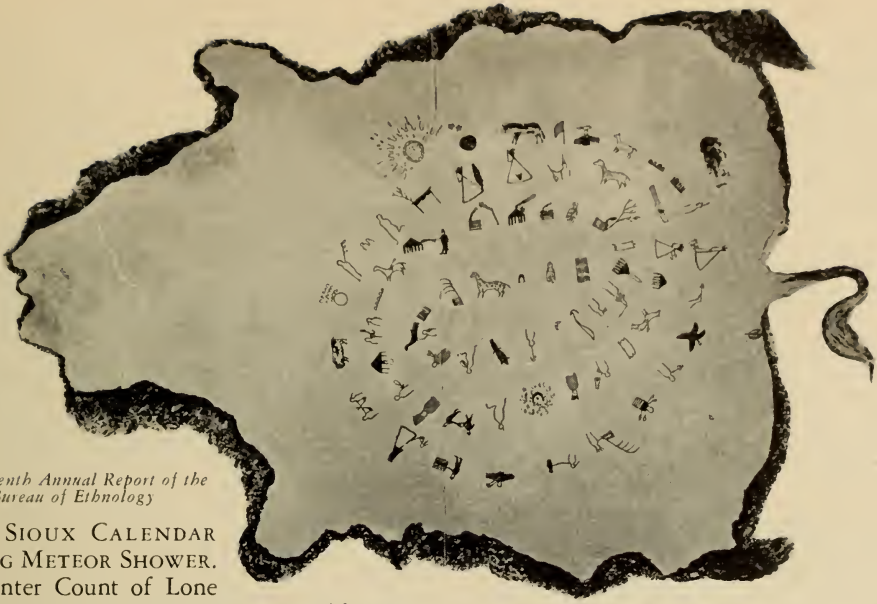 enth Annual Report of the
ureau of Ethnology
SIOUX CALENDAR
G METEOR SHOWER.
nter Count of Lone